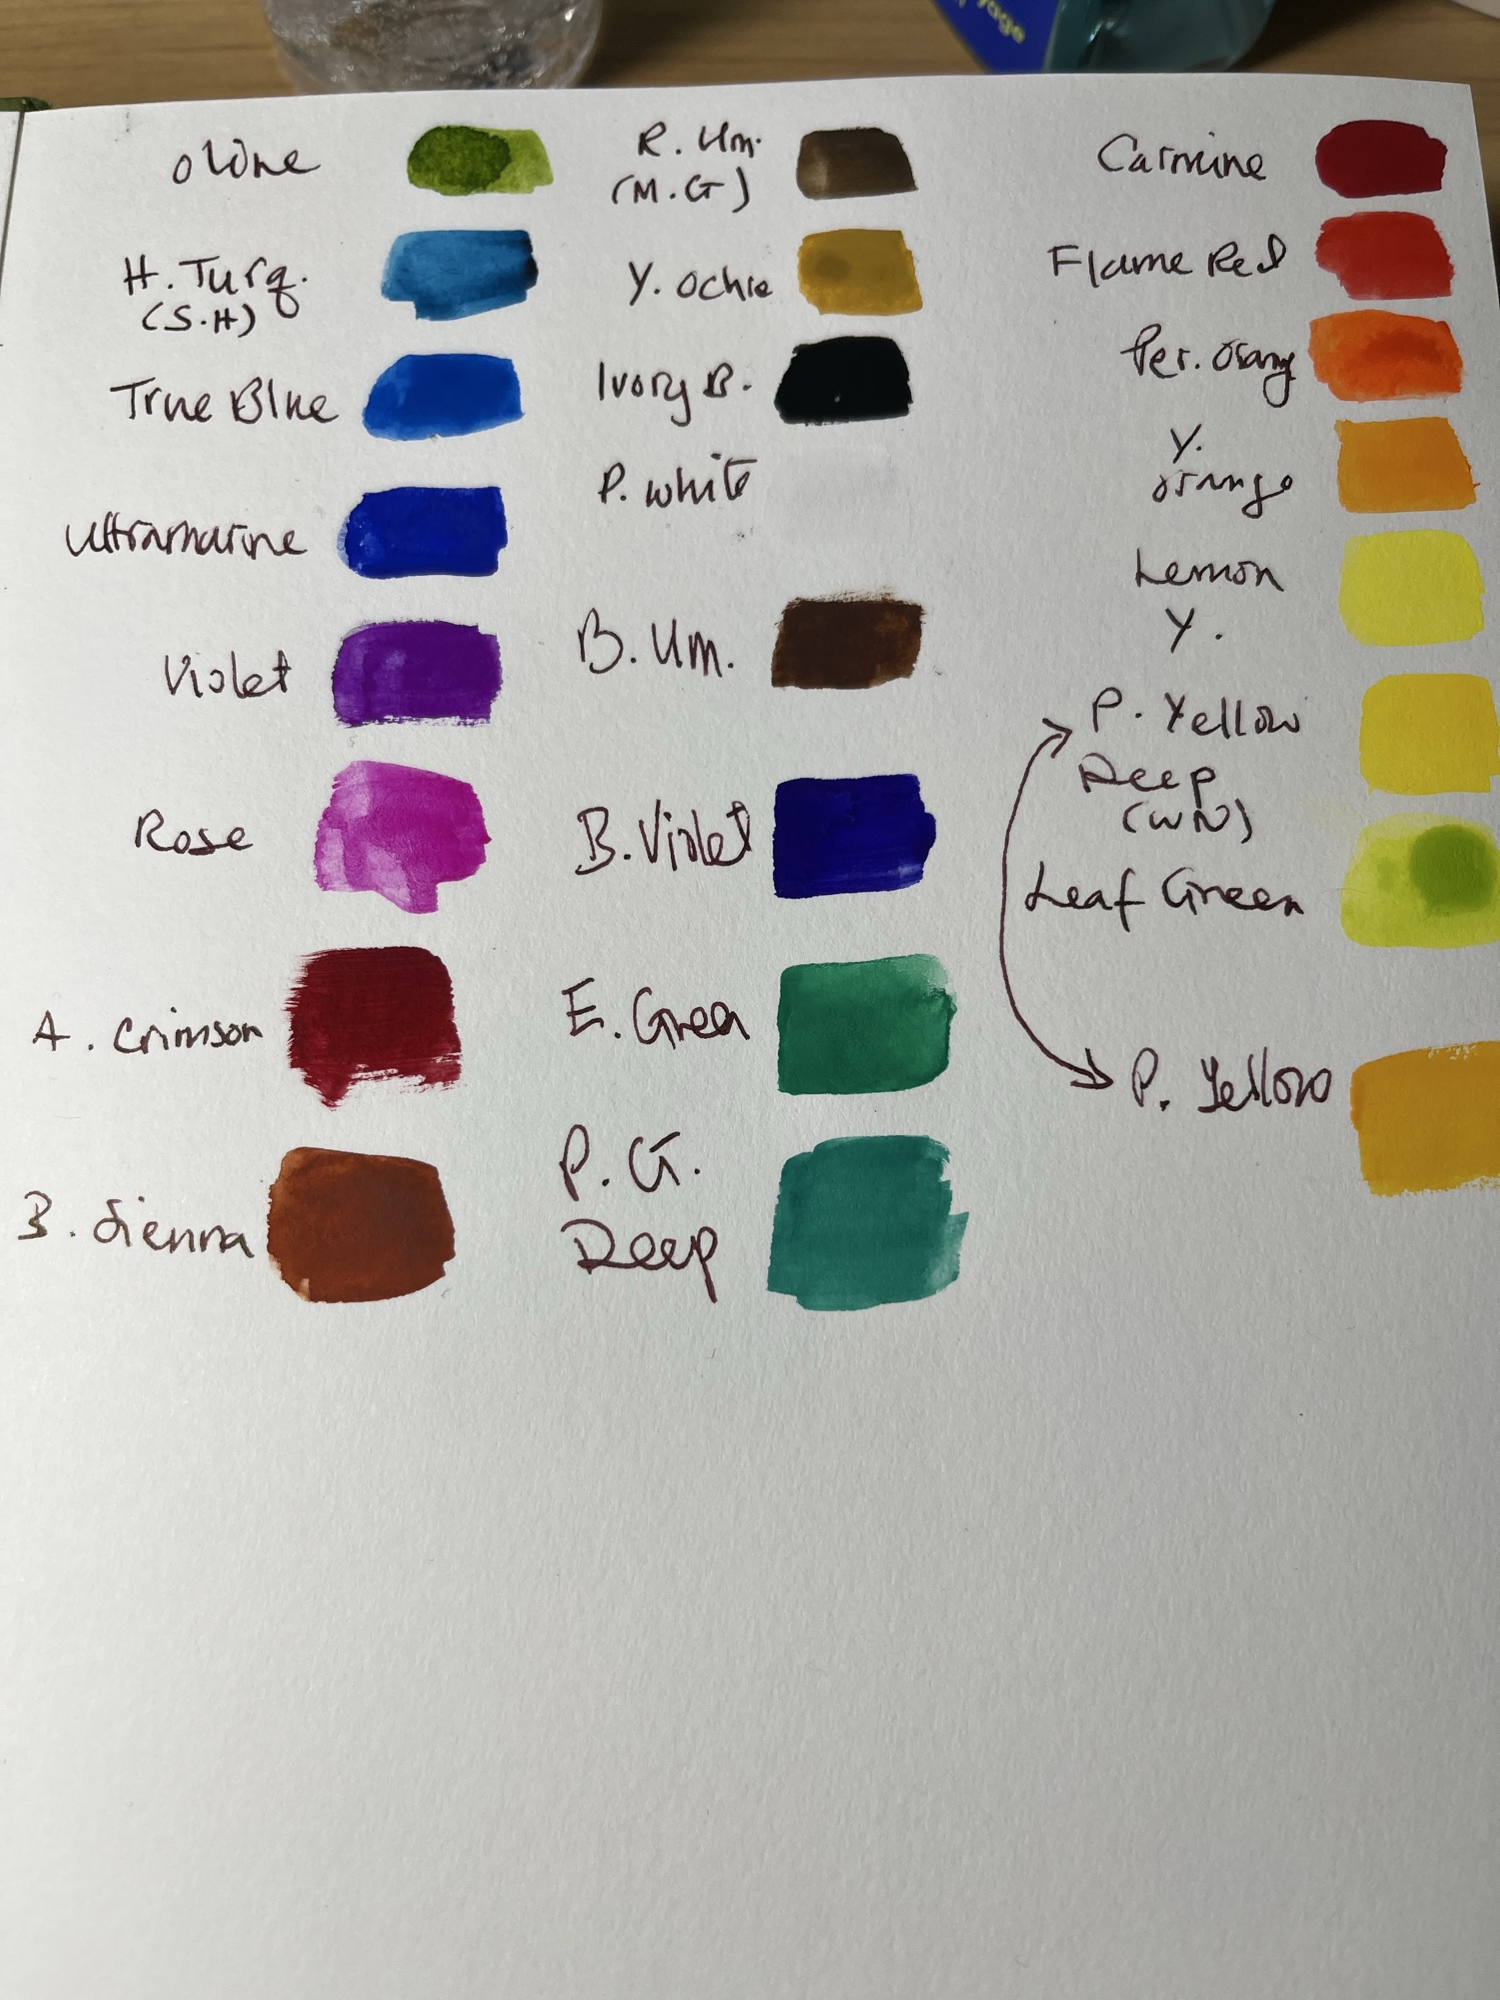 Olive
H. Turq.
(S.H)
True Blue
Ultramarine
Violet
Rose
A. Crimson
B. Sienna
R. Um.
(M.G)
Y. Ochre
Ivory B.
P. White
B. Um.
B. Violet
E. Green
P. G.
Deep
Carmine
Flame Red
Per. Orang
Y.
Orange
Lemon
Y.
P. Yellow
Deep
(WN)
Leaf Green
P. Yellow